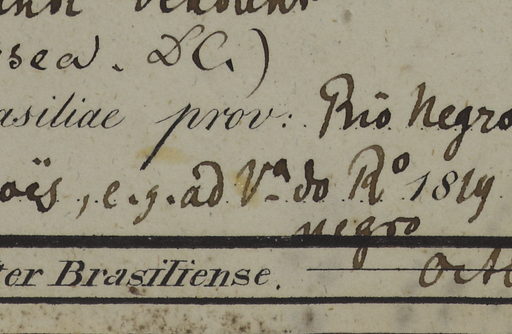 sea. DC.)
asiliae prov: Rio Negro
oës, e.g. ad V.ª do Rº 1819
negro
ter Brasiliense. Oct